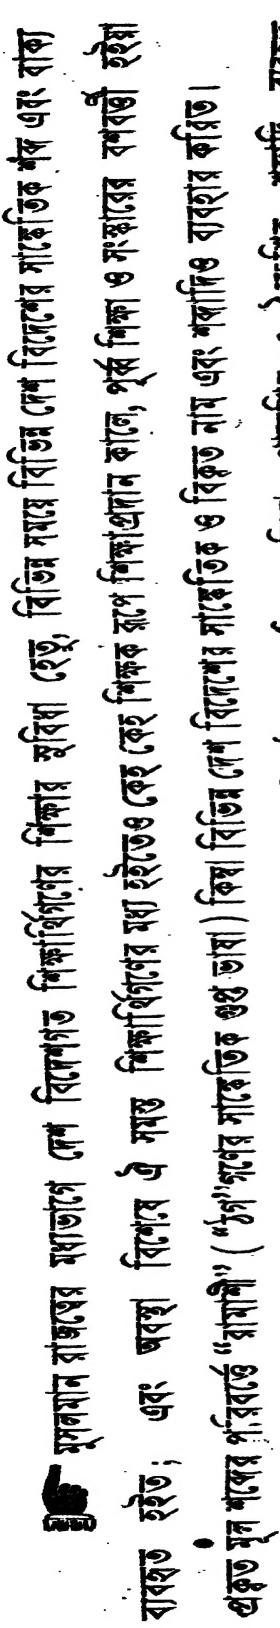 ☛ মুসলমান রাজত্বের মধ্যভাগে দেশ বিদেশগত শিক্ষার্থিগণের শিক্ষার সুবিধা হেতু, বিভিন্ন সময়ে বিভিন্ন দেশ বিদেশের সাঙ্কেতিক শব্দ এবং বাক্য
ব্যবহৃত হইত; এবং অবস্থা বিশেষে ঐ সমস্ত শিক্ষার্থিগণের মধ্য হইতেও কেহ কেহ শিক্ষক রূপে শিক্ষাপ্রদান কালে, পূর্ব্ব শিক্ষা ও সংস্কারের বশবর্ত্তী হইয়া
প্রকৃত মূল শব্দের পরিবর্ত্তে “রামাশী” (“ঠগ”গণের সাঙ্কেতিক গুপ্ত ভাষা) কিম্বা বিভিন্ন দেশ বিদেশের সাঙ্কেতিক ও বিকৃত নাম এবং শব্দাদিও ব্যবহার করিত।